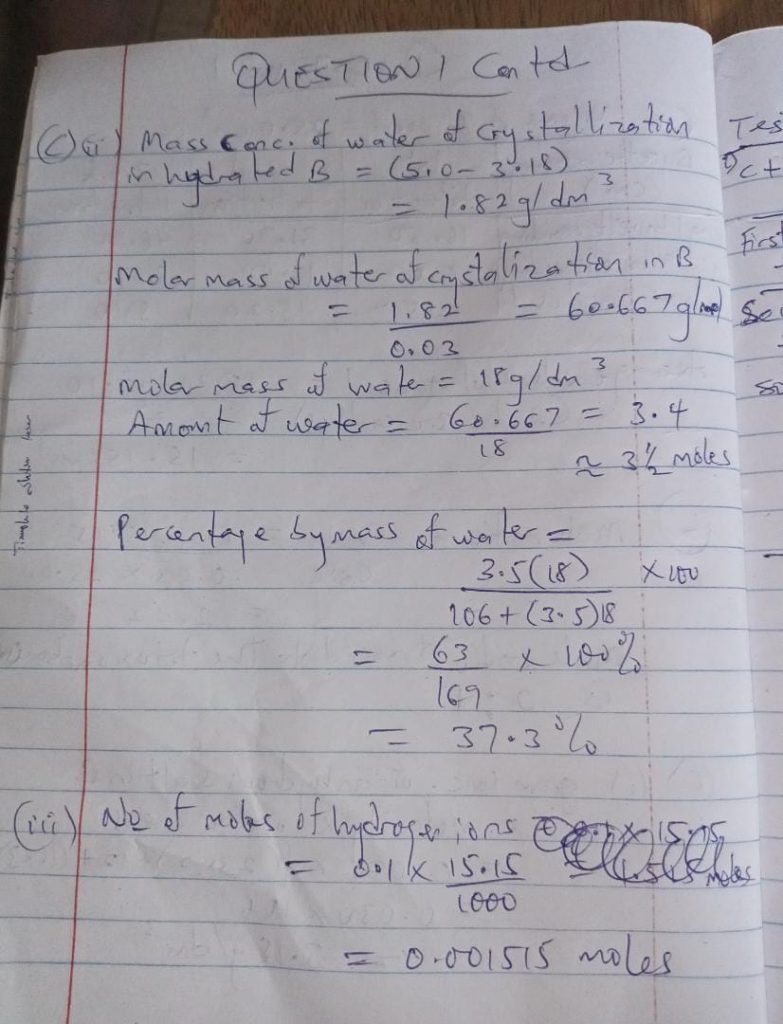 QUESTION 1 Contd
(C)(ii) Mass conc. of water of crystallization
in hydrated B = (5.0 - 3.18)
= 1.82g/dm³
Molar mass of water of crystalization in B
= 1.82/0.03 = 60.667g/mol
molar mass of water = 18g/dm³
Amount of water = 60.667/18 = 3.4
≈ 3½ moles
Percentage by mass of water =
3.5(18)/106+(3.5)18 × 100
= 63/169 × 100%
= 37.3%
(iii) No of moles of hydrogen ions
= 0.1 × 15.15/1000
= 0.001515 moles
Tes
First
Se
so